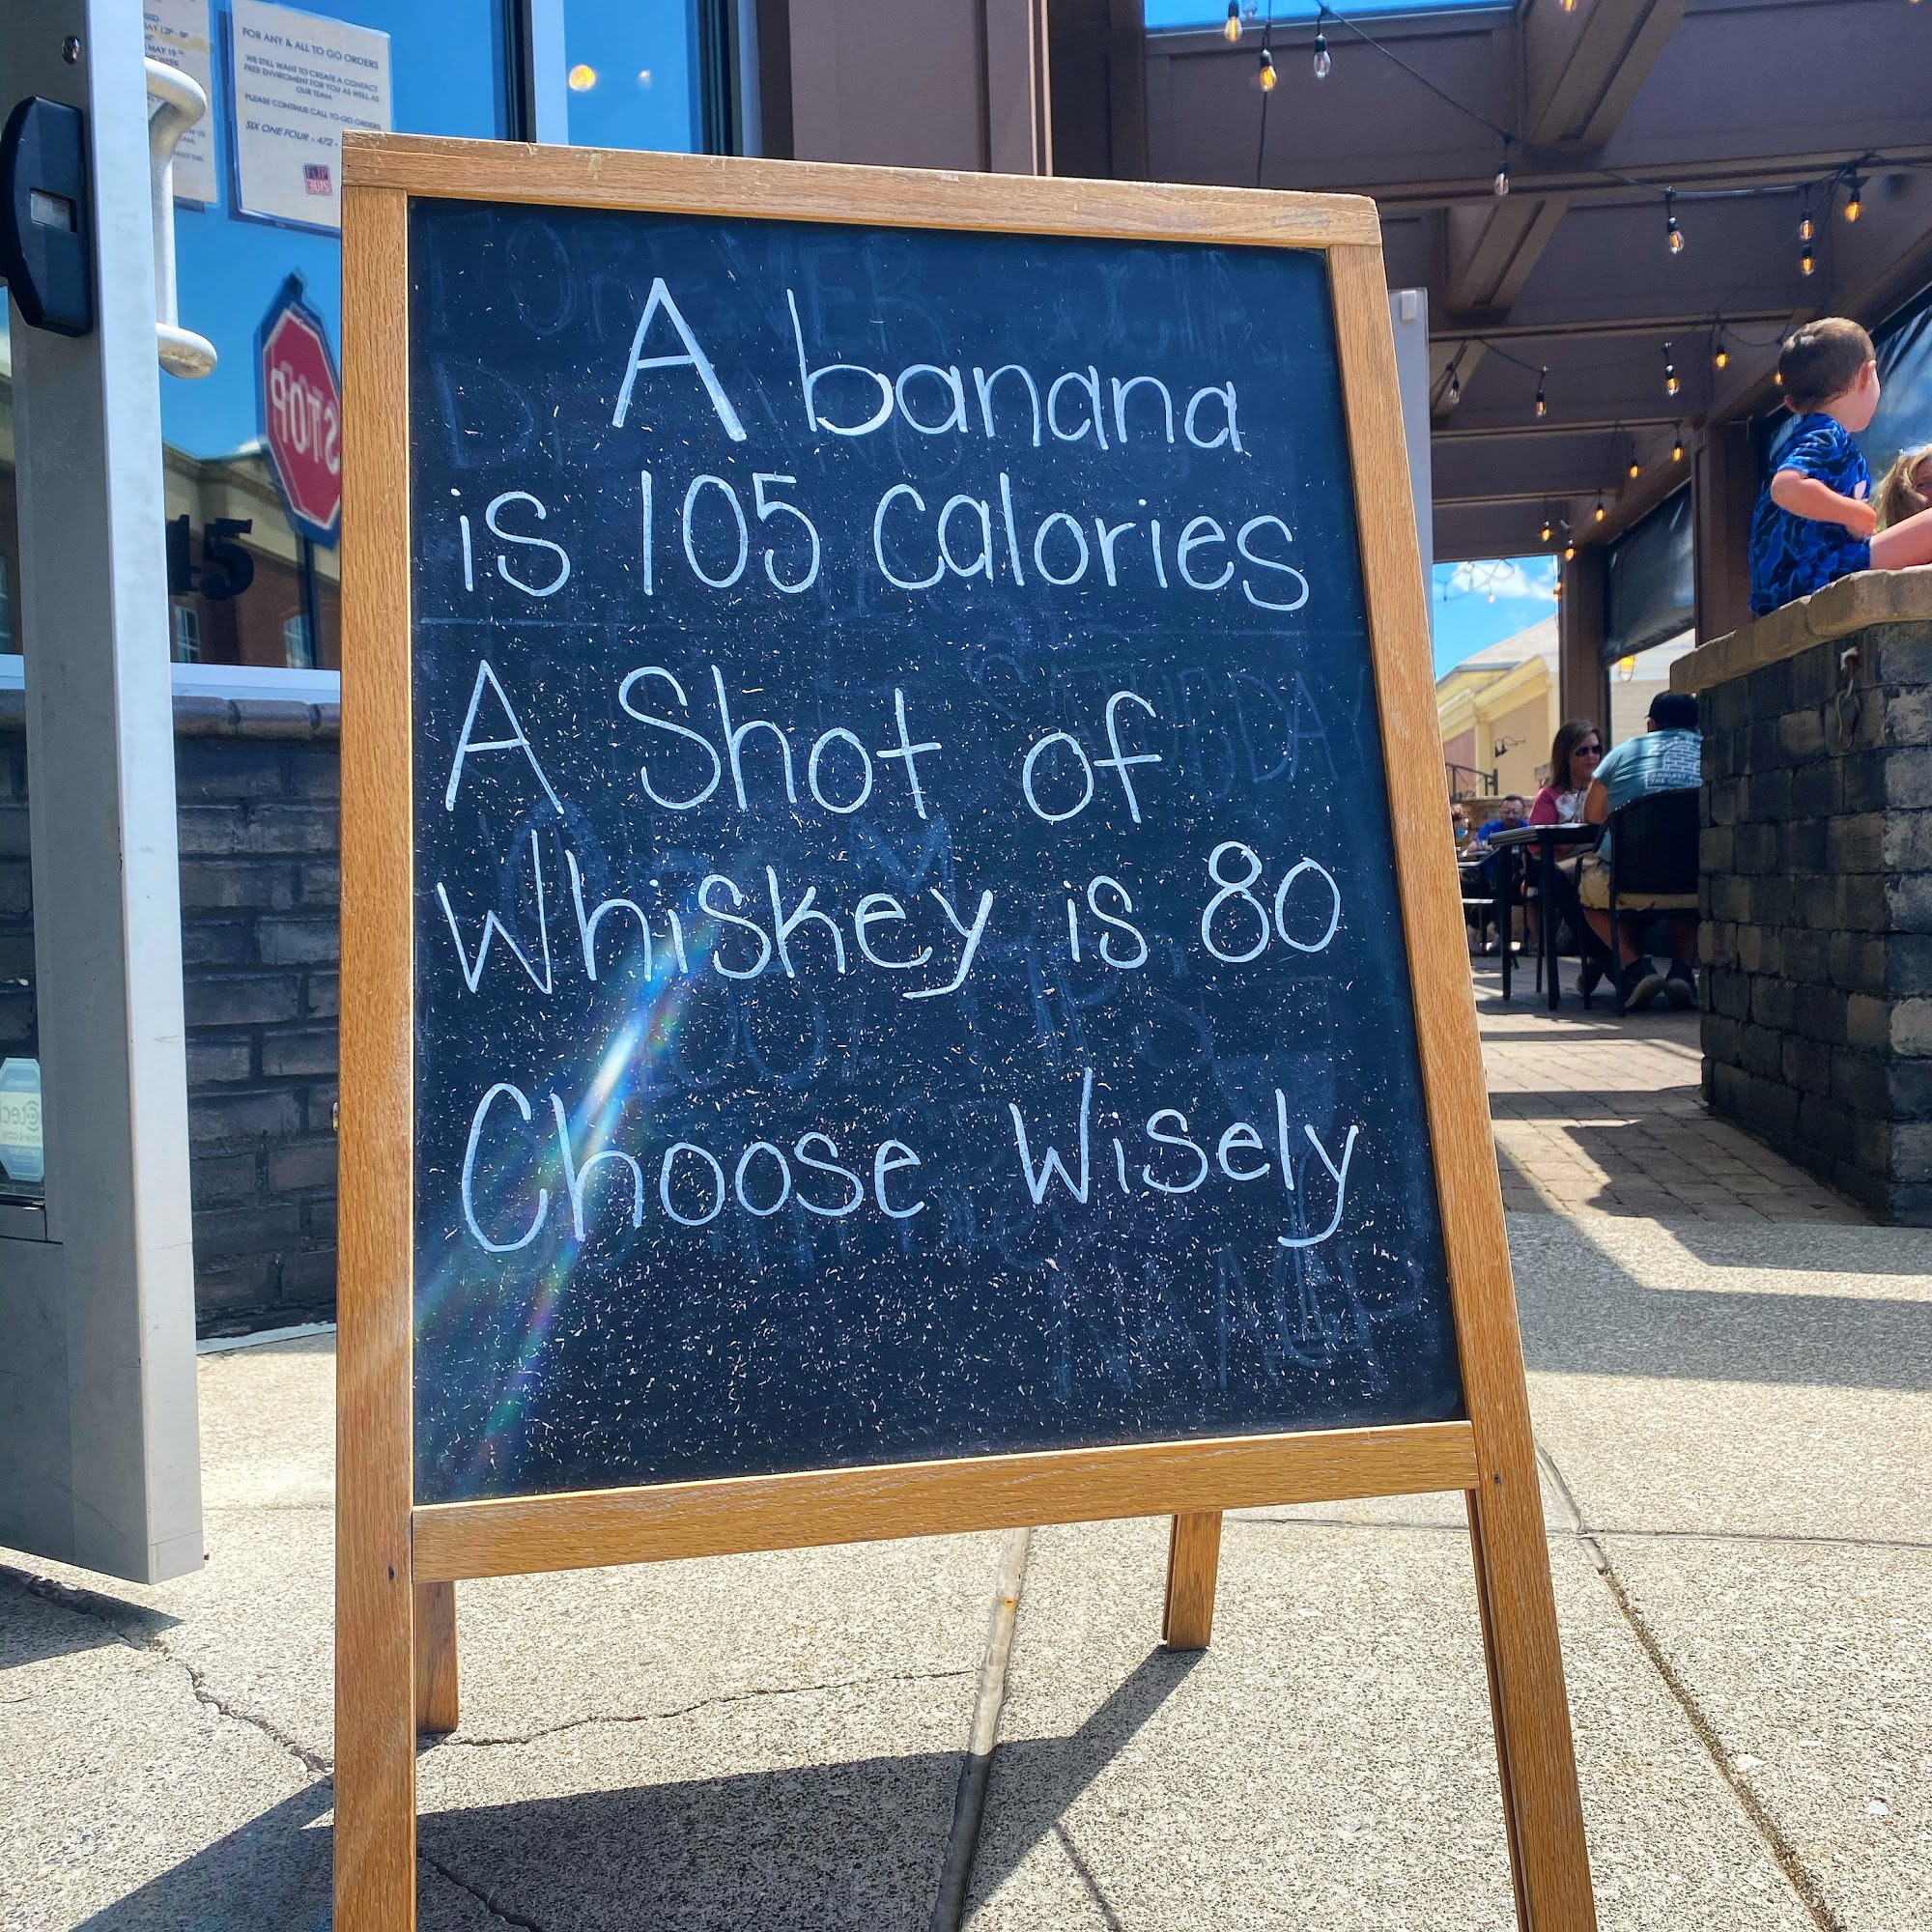 FOR ANY & ALL TO GO ORDERS
WE STILL WANT TO CREATE A CONTACT
FREE ENVIROMENT FOR YOU AS WELL AS
OUR TEAM
PLEASE CONTINUE CALL TO-GO ORDERS
SIX ONE FOUR • 472 •
FLIP
SIDE
MAY 19
STOP
45
A banana
is 105 Calories
A Shot of
Whiskey is 80
Choose Wisely
SATURDAY